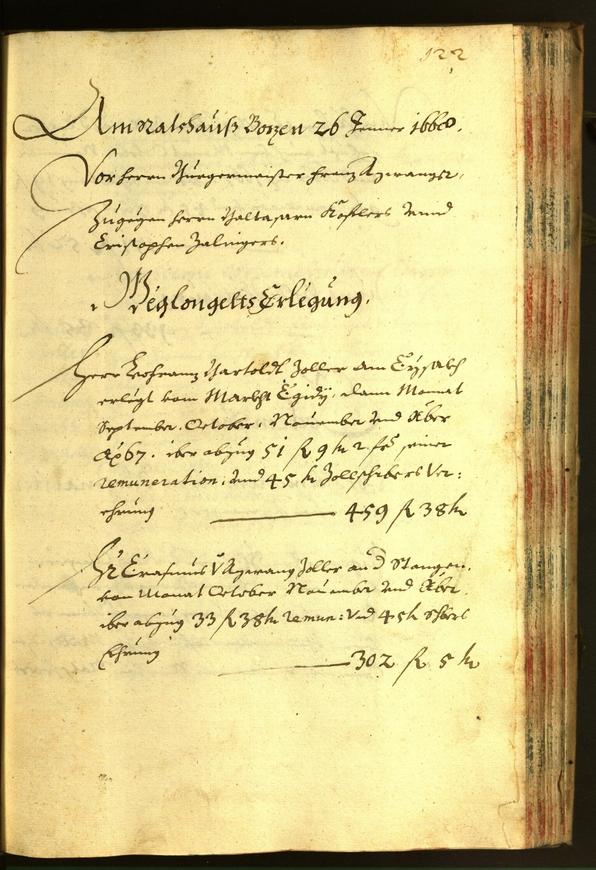 122
Am Ratshauß Bozen 26 Jenner 1668.
Vor herrn Burgermaister Franz Azwanger,
Zugegen herrn Balthasarn Köstlers vnnd
Cristophen Zalingers.
Weglongelts Erlegung.
Herr Franz Hartoldt Zoller am Eysakh
erlegt vom Markht Egidy, dann Monat
September, October, Nouember vnd Xber
667. iber abzug 51 fl 9 kr 2 seiner
remuneration, vnd 45 kr Zollschribers Ver:
ehrung 459 fl 38 kr
Hr Erasmus Azwang Zoller an d Stangen.
vom Monat October Nouember vnd Xber
iber abzug 33 fl 38 kr remun: vnd 45 kr
Ehrung 302 fl 5 kr